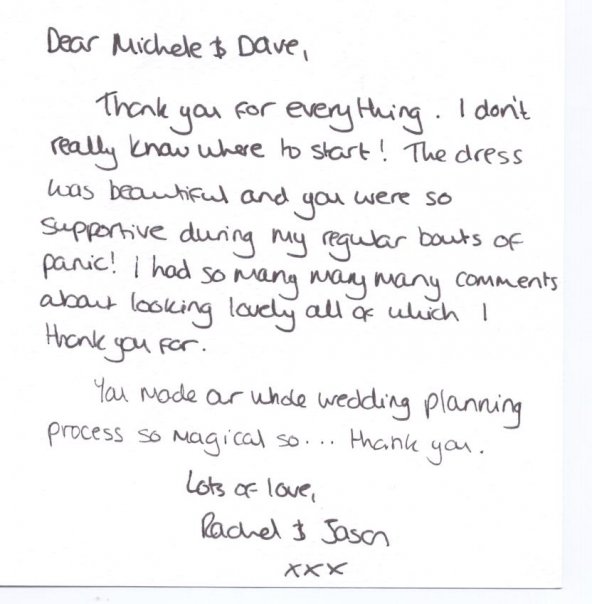 Dear Michele & Dave,
Thank you for everything. I don't
really know where to start! The dress
was beautiful and you were so
supportive during my regular bouts of
panic! I had so many many many comments
about looking lovely all of which I
thank you for.
You made our whole wedding planning
process so magical so... thank you.
Lots of love,
Rachel & Jason
xxx